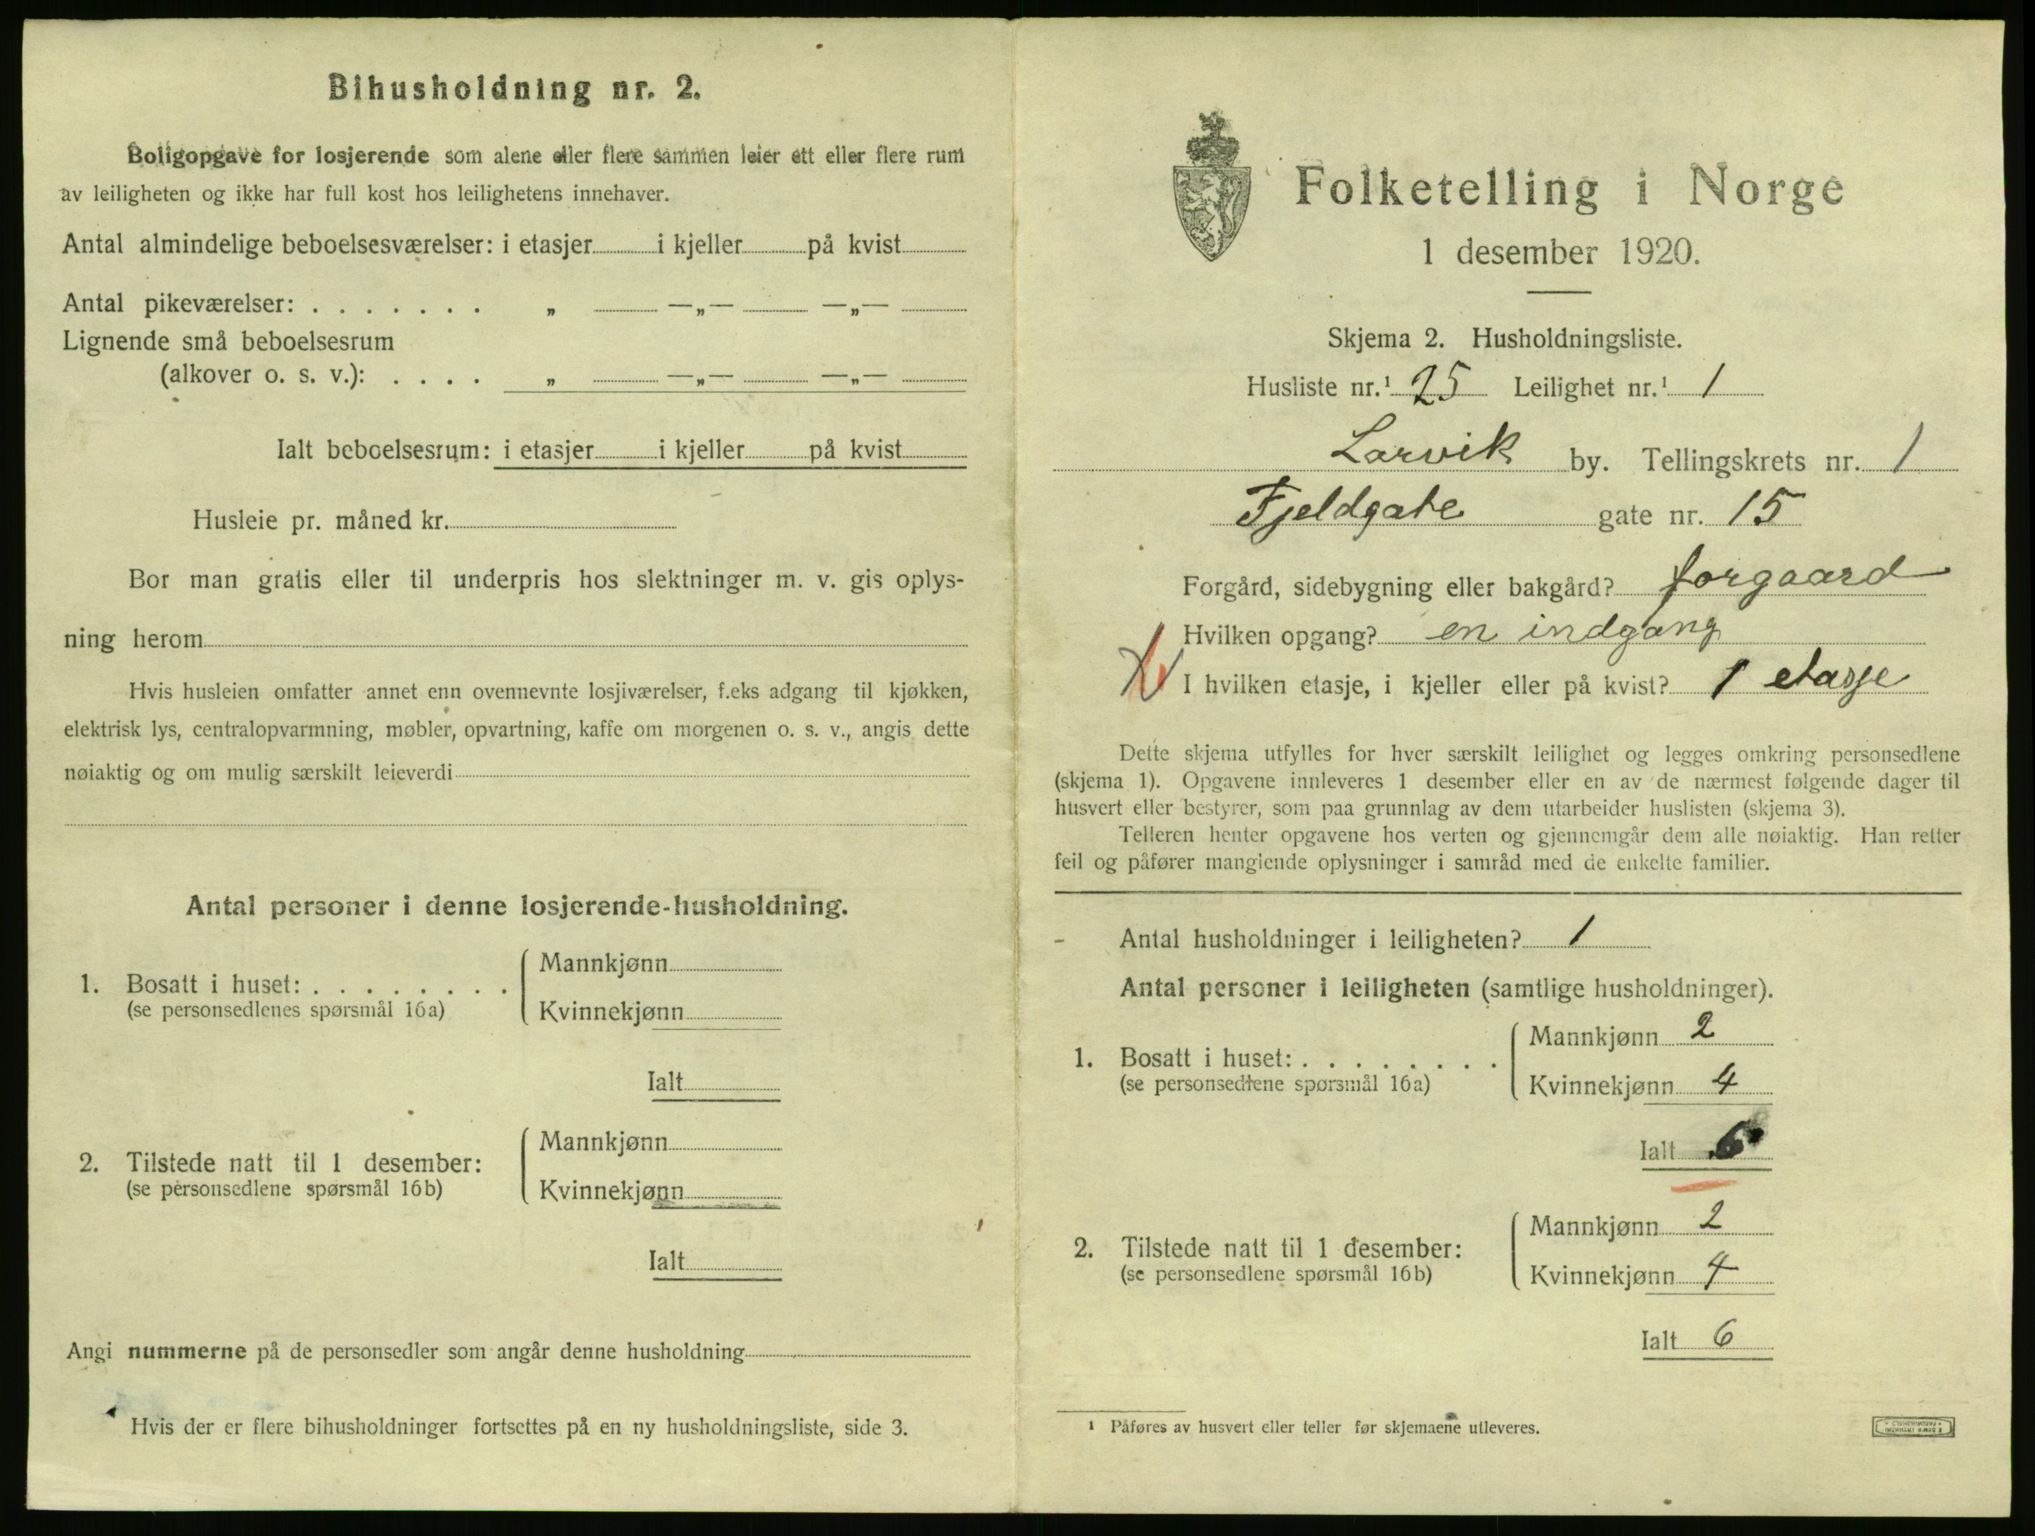 Bihusholdning nr. 2.
Boligopgave for losjerende som alene eller flere sammen leier ett eller flere rum
av leiligheten og ikke har full kost hos leilighetens innehaver.
Antal almindelige beboelsesværelser: i etasjer i kjeller på kvist
Antal pikeværelser: . . . . . . . „ —„— —„—
Lignende små beboelsesrum
(alkover o. s. v.): . . . . „ —„— —„—
Ialt beboelsesrum: i etasjer i kjeller på kvist
Husleie pr. måned kr.
Bor man gratis eller til underpris hos slektninger m. v. gis oplys-
ning herom
Hvis husleien omfatter annet enn ovennevnte losjiværelser, f.eks adgang til kjøkken,
elektrisk lys, centralopvarmning, møbler, opvartning, kaffe om morgenen o. s. v., angis dette
nøiaktig og om mulig særskilt leieverdi
Antal personer i denne losjerende-husholdning.
1. Bosatt i huset: . . . . . . . .
(se personsedlenes spørsmål 16a)
Mannkjønn
Kvinnekjønn
Ialt
2. Tilstede natt til 1 desember:
(se personsedlene spørsmål 16b)
Mannkjønn
Kvinnekjønn
Ialt
Angi nummerne på de personsedler som angår denne husholdning
Hvis der er flere bihusholdninger fortsettes på en ny husholdningsliste, side 3.
Folketelling i Norge
1 desember 1920.
Skjema 2. Husholdningsliste.
Husliste nr.¹ 25 Leilighet nr.¹ 1
Larvik by. Tellingskrets nr. 1
Fjeldgate gate nr. 15
Forgård, sidebygning eller bakgård? forgaard
Hvilken opgang? en indgang
I hvilken etasje, i kjeller eller på kvist? 1 etasje
Dette skjema utfylles for hver særskilt leilighet og legges omkring personsedlene
(skjema 1). Opgavene innleveres 1 desember eller en av de nærmest følgende dager til
husvert eller bestyrer, som paa grunnlag av dem utarbeider huslisten (skjema 3).
Telleren henter opgavene hos verten og gjennemgår dem alle nøiaktig. Han retter
feil og påfører manglende oplysninger i samråd med de enkelte familier.
Antal husholdninger i leiligheten? 1
Antal personer i leiligheten (samtlige husholdninger).
1. Bosatt i huset: . . . . . . . .
(se personsedlene spørsmål 16a)
Mannkjønn 2
Kvinnekjønn 4
Ialt 6
2. Tilstede natt til 1 desember:
(se personsedlene spørsmål 16b)
Mannkjønn 2
Kvinnekjønn 4
Ialt 6
¹ Påføres av husvert eller teller før skjemaene utleveres.